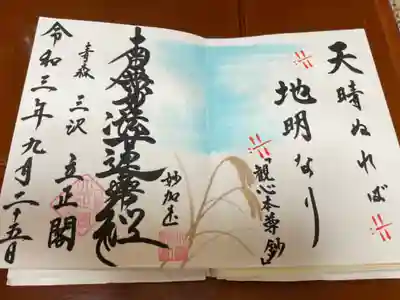 天晴ぬれば
地明なり
「観心本尊鈔」
妙加護
南無妙法蓮華経
青森
三沢
立正閣
令和三年九月二十五日